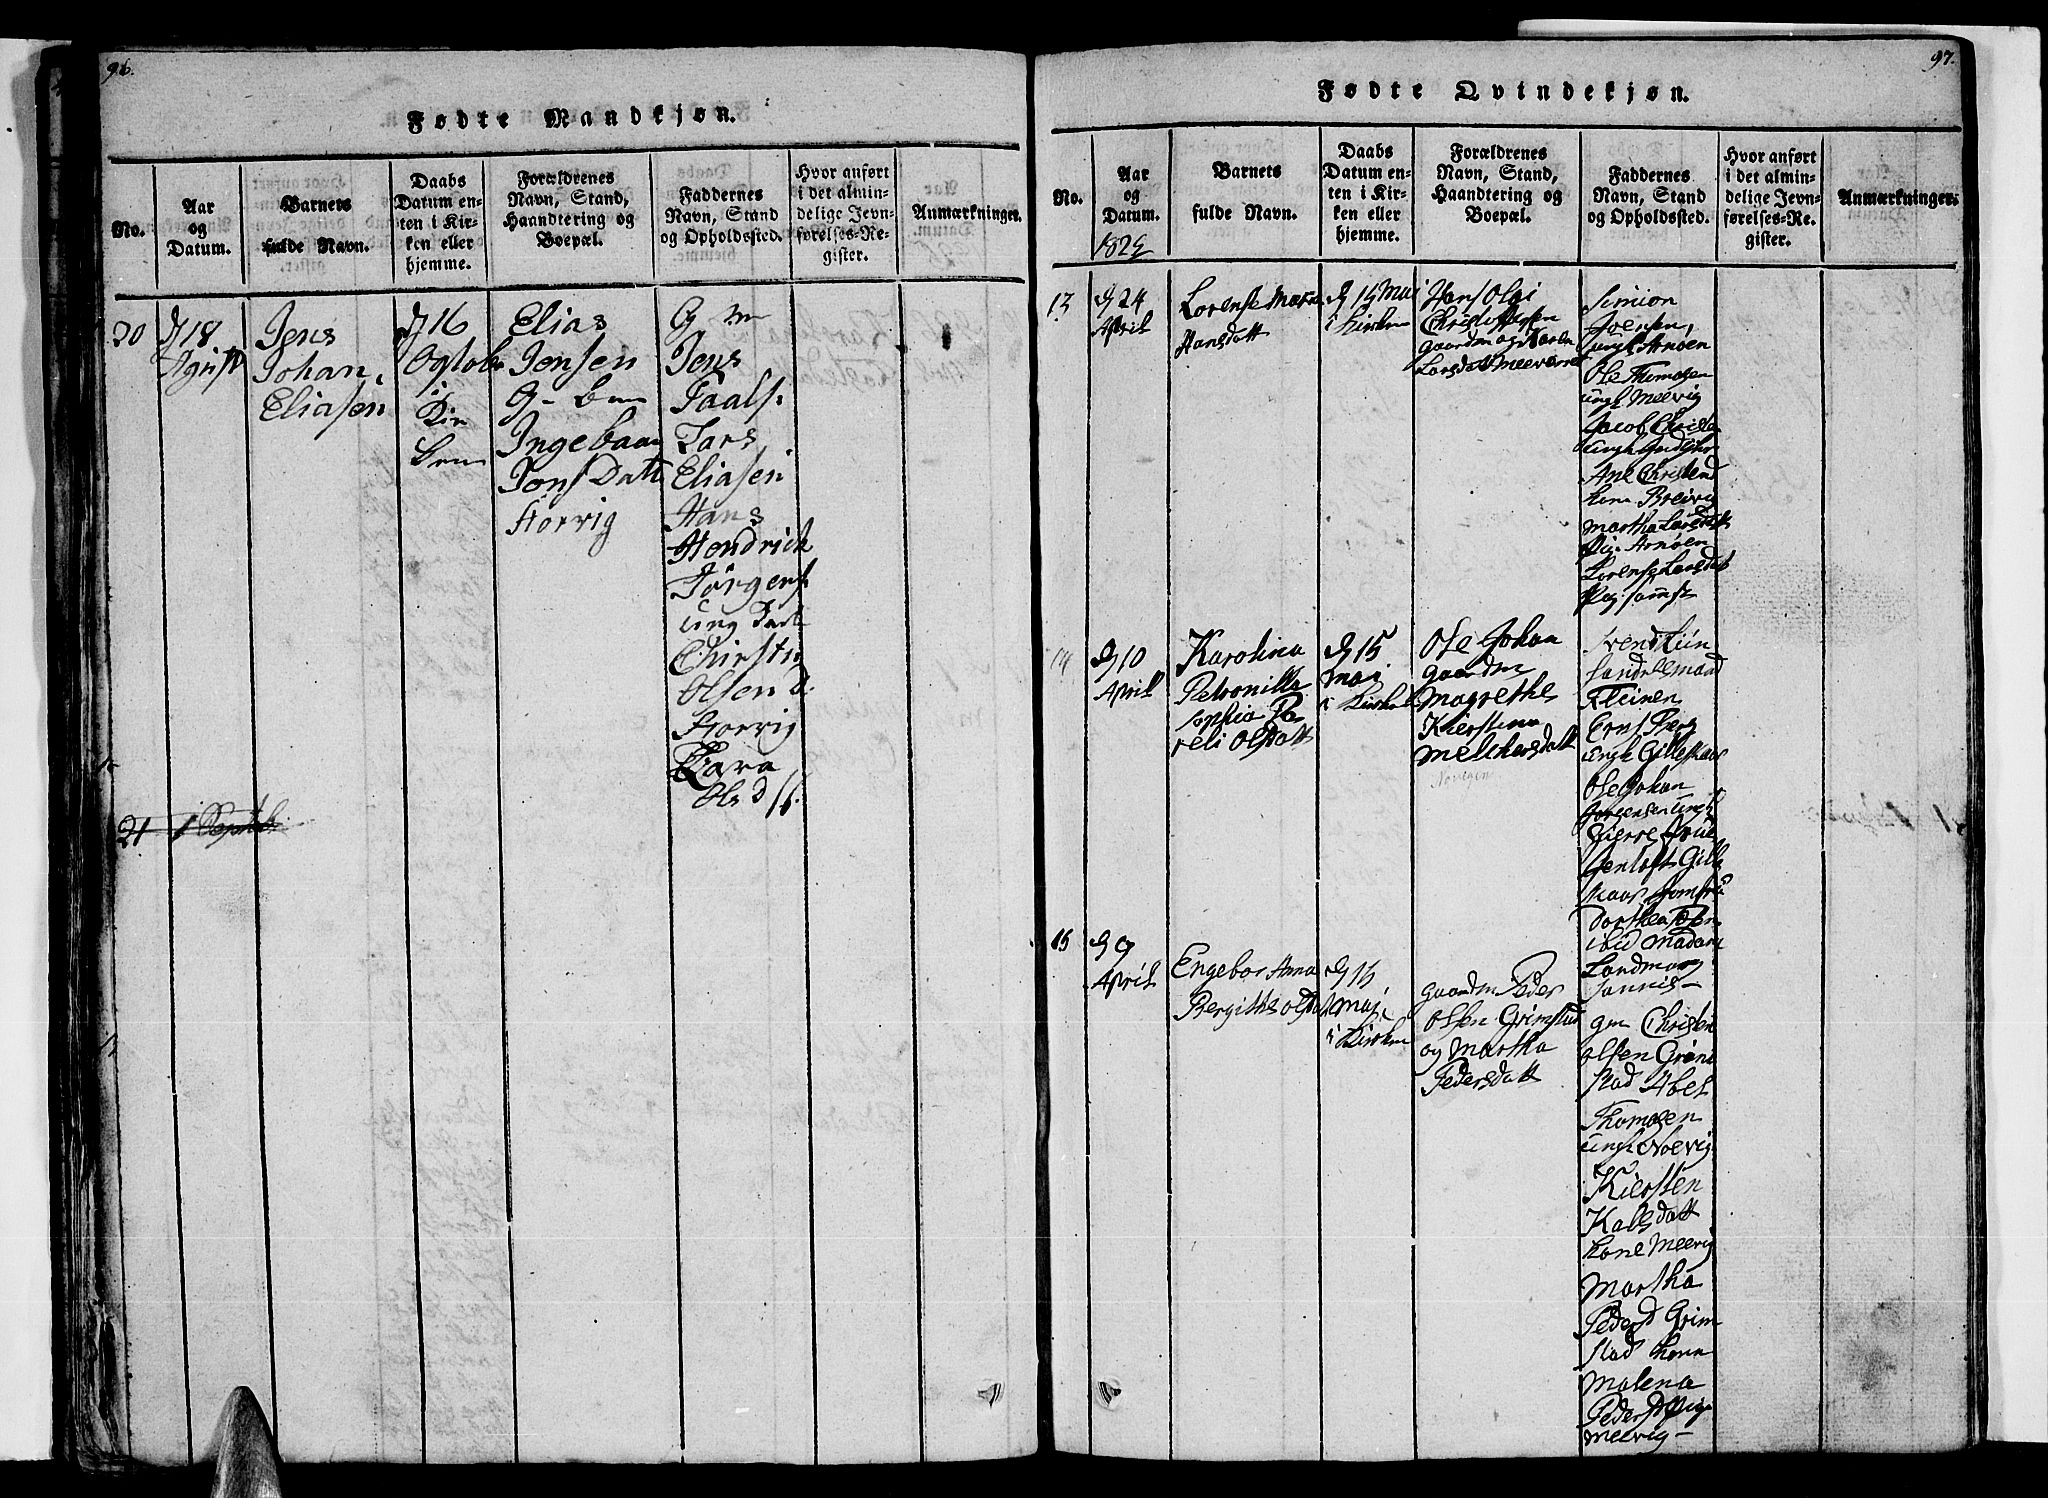 96.
Fødte Mandkjøn.
No.
Aar
og
Datum.
Barnets
fulde Navn.
Daabs
Datum en-
ten i Kir-
ken eller
hjemme.
Forældrenes
Navn, Stand,
Haandtering og
Boepæl.
Faddernes
Navn, Stand
og Opholdssted.
Hvor anført
i det almin-
delige Jevn-
førelses-Re-
gister.
Anmærkninger.
20
18
Agust
Jens
Johan
Eliasen
16
Ogtobr
i
Kir
Elias
Jensen
Ingebaar
Jons Datt
Storvig
G m
Jens
Paals
Lars
Eliasen
Hans
Hendrich
Jörgens
ung
Chirstin
Olsen d.
Storvig
Sara
Ols d
21
1 Septb
97.
Fødte Qvindekjøn.
No.
Aar
og
Datum.
1825
Barnets
fulde Navn.
Daabs
Datum en-
ten i Kir-
ken eller
hjemme.
Forældrenes
Navn, Stand,
Haandtering og
Boepæl.
Faddernes
Navn, Stand
og Opholdssted.
Hvor anført
i det almin-
delige Jevn-
førelses-Re-
gister.
Anmærkninger.
13
24
April
Lorense Maria
Hansdatt
15 Mai
i Kirken
Hans Olai
Christophersen
gaardm og Karen
Larsdatt
Simion
Joensen,
ungk Arnöen
Ole Thomasen
ungk Melvig
Jacob Christen
ungk
Ane Christend
kone Breivig
Martha Larsdatt
Pig. Arnöen
Lorense Larsdat
Pig samst
14
10
April
Karolina
Petronilla
Sophia Pe-
reli Olsdatt
15
Mai
i Kirken
Ole Johan
gaardm
Magrethe
Kierstina
Melchersdatt
Svendstiin
Handelsmand
Fleinen
Ernst Berg
ungk Gilleskaar
Ole Johan
Jörgensen ungk
Jentoft Gille
skaar Jomfru
Dorthea
ibid Madam
Landmarg
15
9
April
Engebor Anna
Bergithe
15
Maj
i Kirken
gaardm Peder
Olsen Grimstad
og Martha
Pedersdatt
gm Christen
Olsen Grim
stad Abel
Thomasen
Kiersten
Kalsdatt
kone Meevig
Martha
Peders d Grim
stad kone
Malena
Peders d Pige
Meevig